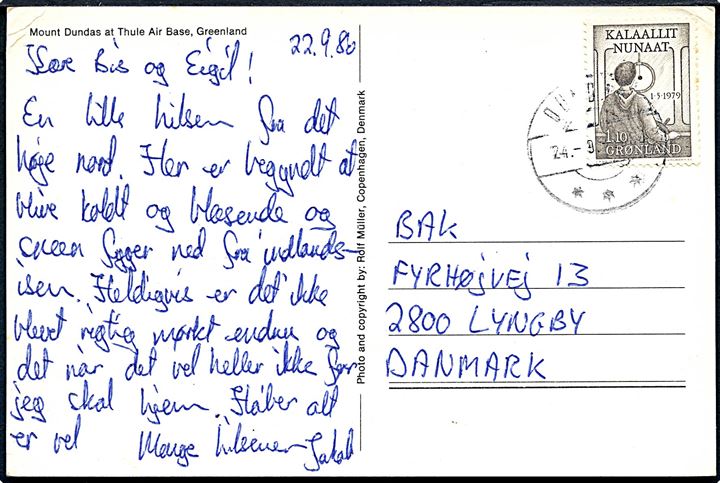 Mount Dundas at Thule Air Base, Greenland
22.9.80
Kære Bis og Eigil!
En lille hilsen fra det
høje nord. Her er begyndt at
blive koldt og blæsende og
sneen fyger ned fra indlands-
isen. Heldigvis er det ikke
blevet rigtig mørkt endnu og
det når det vel heller ikke før
jeg skal hjem. Håber alt
er vel Mange hilsener Jakob
Photo and copyright by: Rolf Müller, Copenhagen, Denmark
KALAALLIT
NUNAAT
1·5·1979
1.10
GRØNLAND
24.-9
BAK
FYRHØJVEJ 13
2800 LYNGBY
DANMARK